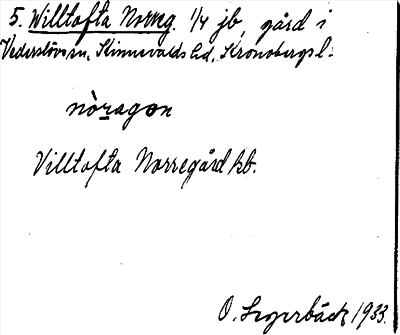 5. Willtofta Norreg. 1/4 jb, gård i
Vederslövs sn, Kinnevalds hd, Kronobergs l.
nòragon
Villtofta Norregård kb.
O. Segerbäck 1933.